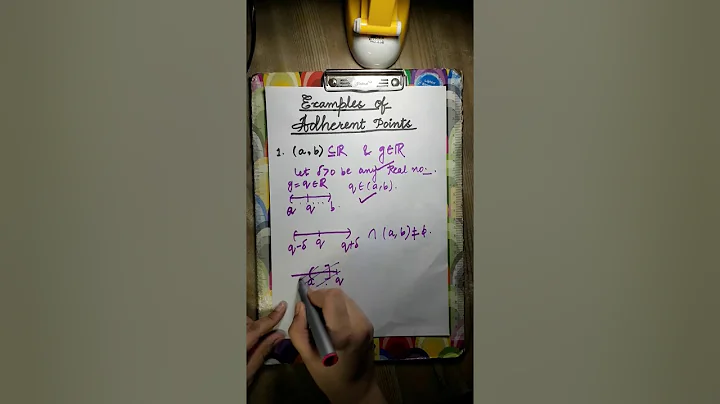 Examples of
Adherent Points
1. (a,b) ⊆ ℝ & y ∈ ℝ
Let δ>0 be any Real no.
y = q ∈ ℝ q ∈ (a,b).
a q b
q-δ q q+δ ∩ (a,b) ≠ ϕ.
a q